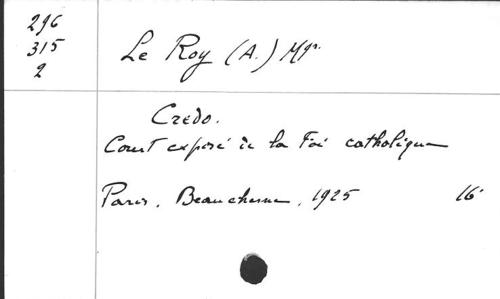 296
315
2
Le Roy (A.) Mgr.
Credo.
Court exposé de la Foi catholique
Paris, Beauchesne, 1925 16°